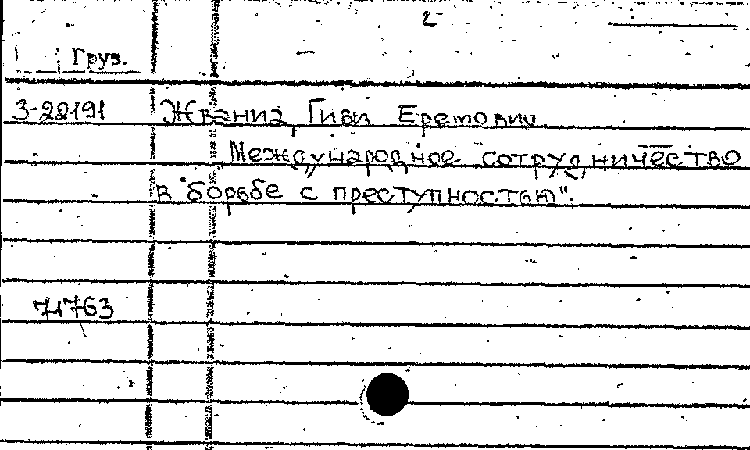 2
Груз.
3-28191 Жвания, Гиви Еремович
Международное сотрудничество
в "борьбе с преступностью".
71763